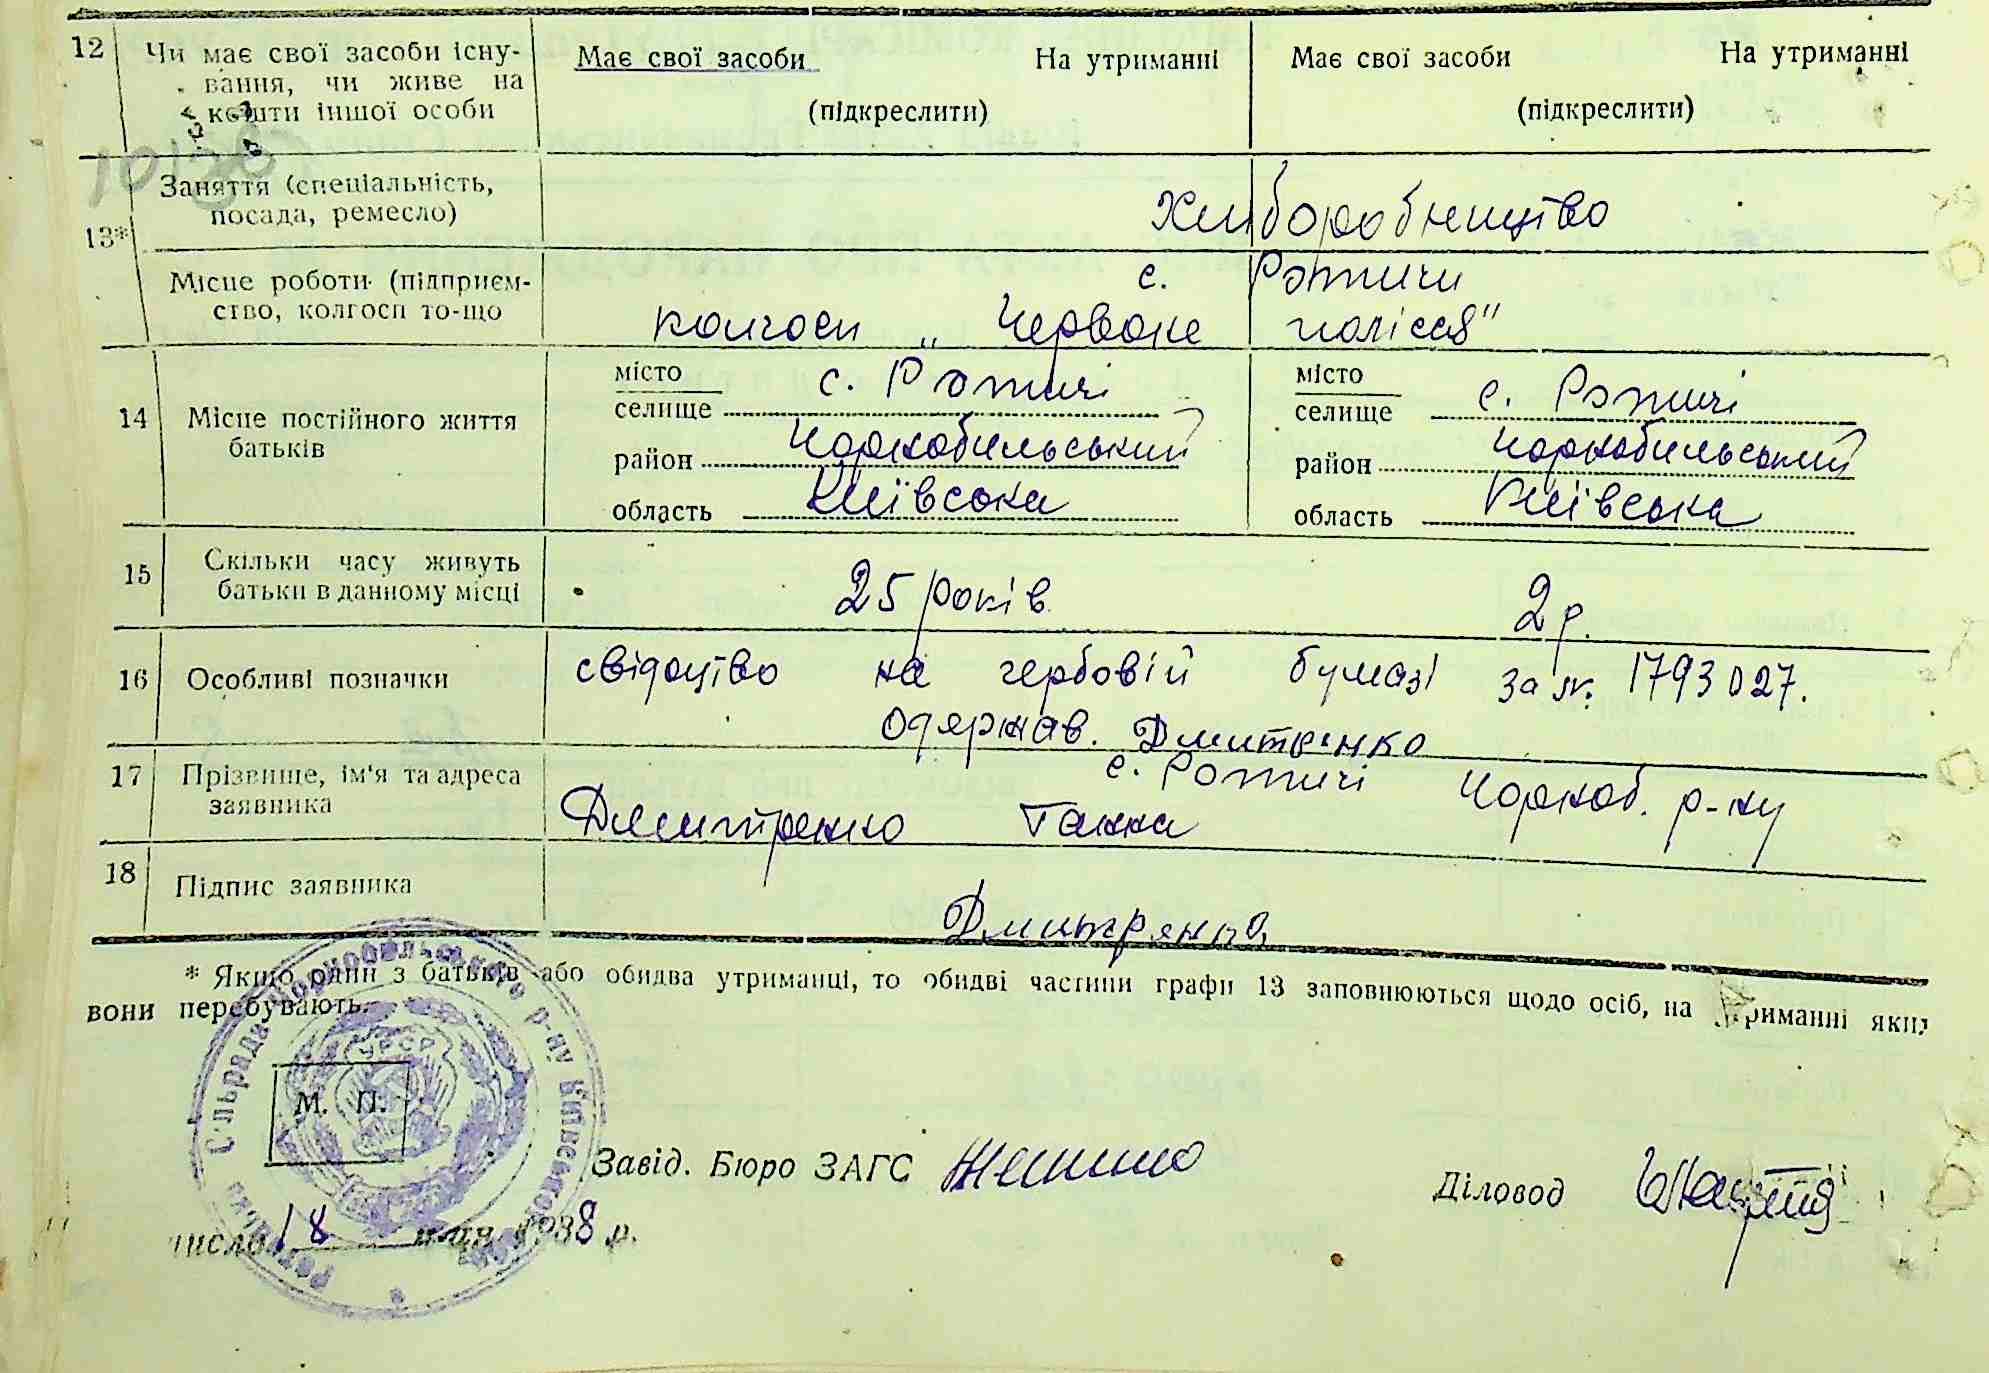 12 Чи має свої засоби існу-
вання, чи живе на
кошти іншої особи
Має свої засоби На утриманні
(підкреслити)
Має свої засоби На утриманні
(підкреслити)
13* Заняття (спеціальність,
посада, ремесло)
Хлиборобництво
Місце роботи (підприєм-
ство, колгосп то-що
с. Ротичи
колгосп „Червоне полісся"
14 Місце постійного життя
батьків
місто
селище с. Ротичі
район Чорнобильський
область Київська
місто
селище с. Ротичі
район Чорнобильський
область Київська
15 Скільки часу живуть
батьки в данному місці
25 років 2 р.
16 Особливі позначки
свідоцтво на гербовій бумазі за №. 1793027.
одержав. Дмитренко
17 Прізвище, ім'я та адреса
заявника
с. Ротичі Чорноб. р-ну
Дмитренко Ганна
18 Підпис заявника
* Якщо один з батьків або обидва утриманці, то обидві частини графи 13 заповнюються щодо осіб, на утриманні яких
вони перебувають.
Сільрада Чорнобильського р-ну Київської
УРСР
М. П.
Завід. Бюро ЗАГС
Діловод
число 18 1938 р.